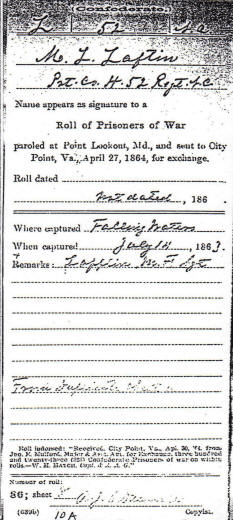 (Confederate.)
L 52 N.C.
M. L. Laftin
Pvt. Co. H. 52 Regt. N.C.
Name appears as signature to a
Roll of Prisoners of War
paroled at Point Lookout, Md., and sent to City
Point, Va., April 27, 1864, for exchange.
Roll dated
Not dated, 186 .
Where captured Falling Waters
When captured July 14, 1863.
Remarks: Laftin M. F. Sgt
From Duplicate
Roll indorsed: "Received, City Point, Va., Apr. 30, '64, from
Jno. E. Mulford, Major & Asst. Agt. for Exchange, three hundred
and twenty-three (323) Confederate Prisoners of war on within
rolls.—W. H. HATCH, Capt. & A. A. G."
Number of roll:
86; sheet
(639b) Copyist.
10A